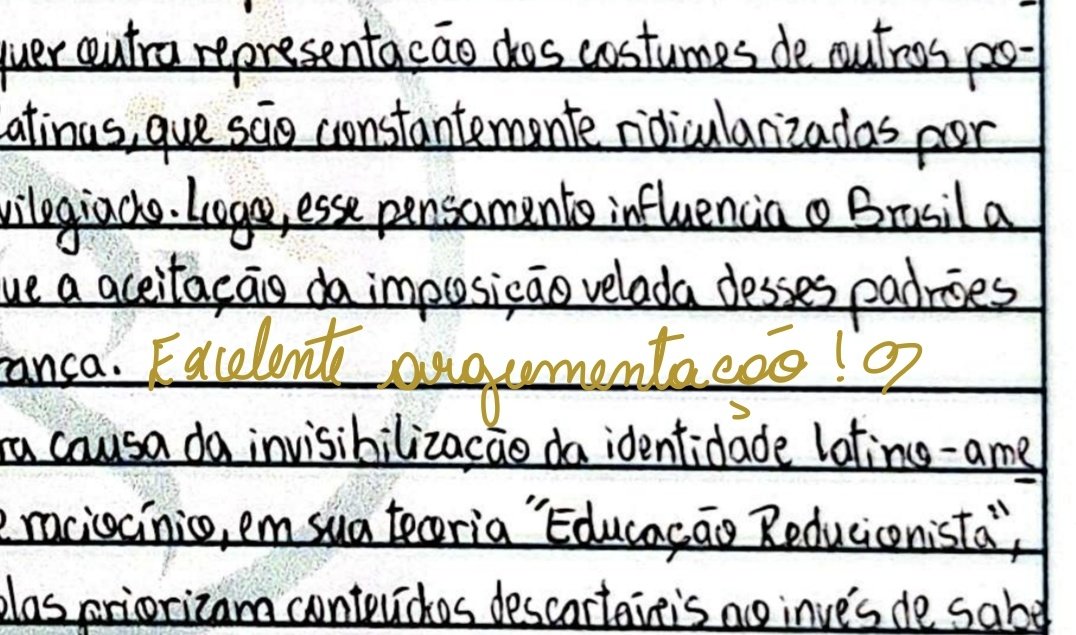 quer outra representação dos costumes de outros po-
latinos, que são constantemente ridicularizadas por
vilegiado. Logo, esse pensamento influencia o Brasil a
que a aceitação da imposição velada desses padrões
rança. Excelente argumentação!
ra causa da invisibilização da identidade latino-ame
e raciocínio, em sua teoria "Educação Reducionista",
olas priorizam conteúdos descartáveis ao invés de sabe